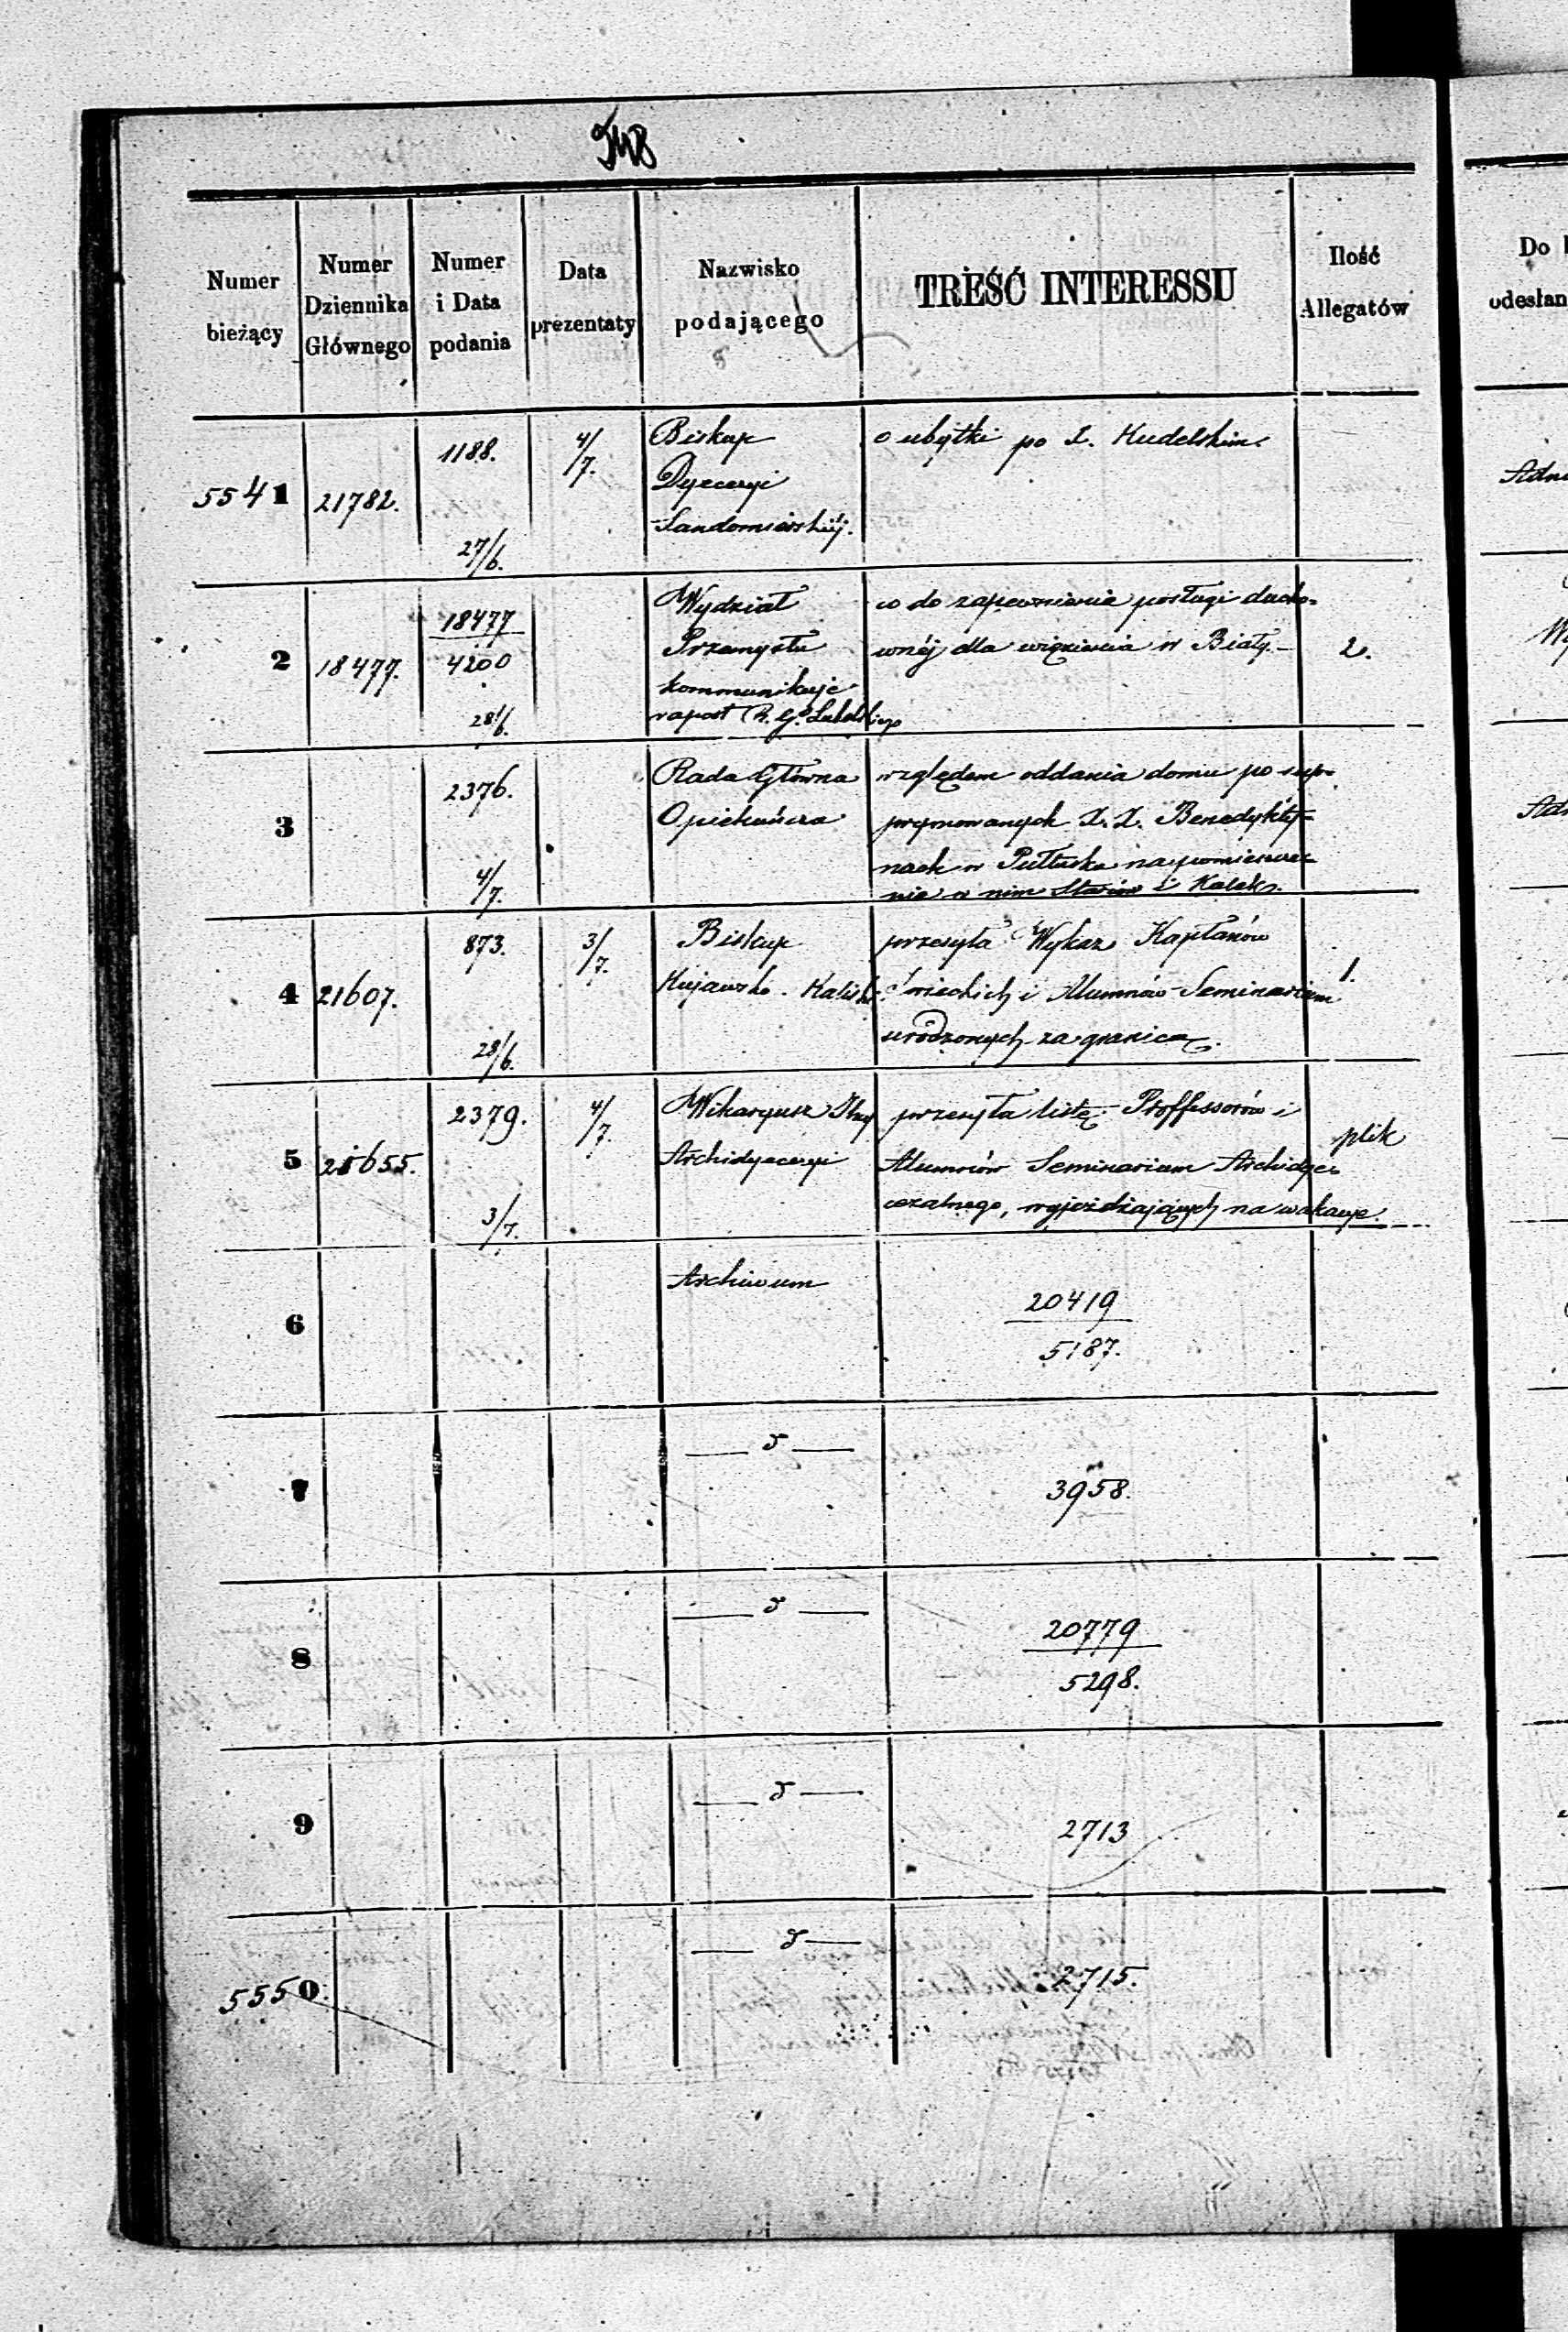 548
Numer bieżący
Numer Dziennika Głównego
Numer i Data podania
Data prezentaty
Nazwisko podającego
TREŚĆ INTERESSU
Ilość Allegatów
Do
odesłan
5541 21782. 1188. 27/6. 4/7.
Biskup
Dyecezyi
Sandomierskiéj.
o ubytki po X. Kudelskim.
2 18477. 18477
4200
28/6.
Wydział
Przemysłu
kommunikuje
raport R. G. Lubelskiego
co do zapewnienia posługi ducho-
wnéj dla więzienia w Biały.
2.
3 2376. 4/7.
Rada Główna
Opiekuńcza
względem oddania domu po sup-
prymowanych X. X. Benedykty-
nach w Pułtusku na pomieszcze-
nie w nim Starców i Kalek.
4 21607. 873. 28/6. 3/7.
Biskup
Kujawsko-Kaliski
przesyła Wykaz Kapłanów
Świeckich i Alumnów Seminarium
urodzonych za granicą.
1.
5 21655. 2379. 3/7. 4/7.
Wikaryusz
Archidyecezyi
przesyła listę Proffessorów i
Alumnów Seminarium Archidye-
cezalnego, wyjeżdżających na wakacye.
plik
6 Archiwum
20419
5187.
7
3958.
8
20779
5298.
9
2713
5550
2715.